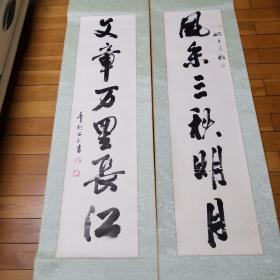 風采三秋明月
文章万里長江